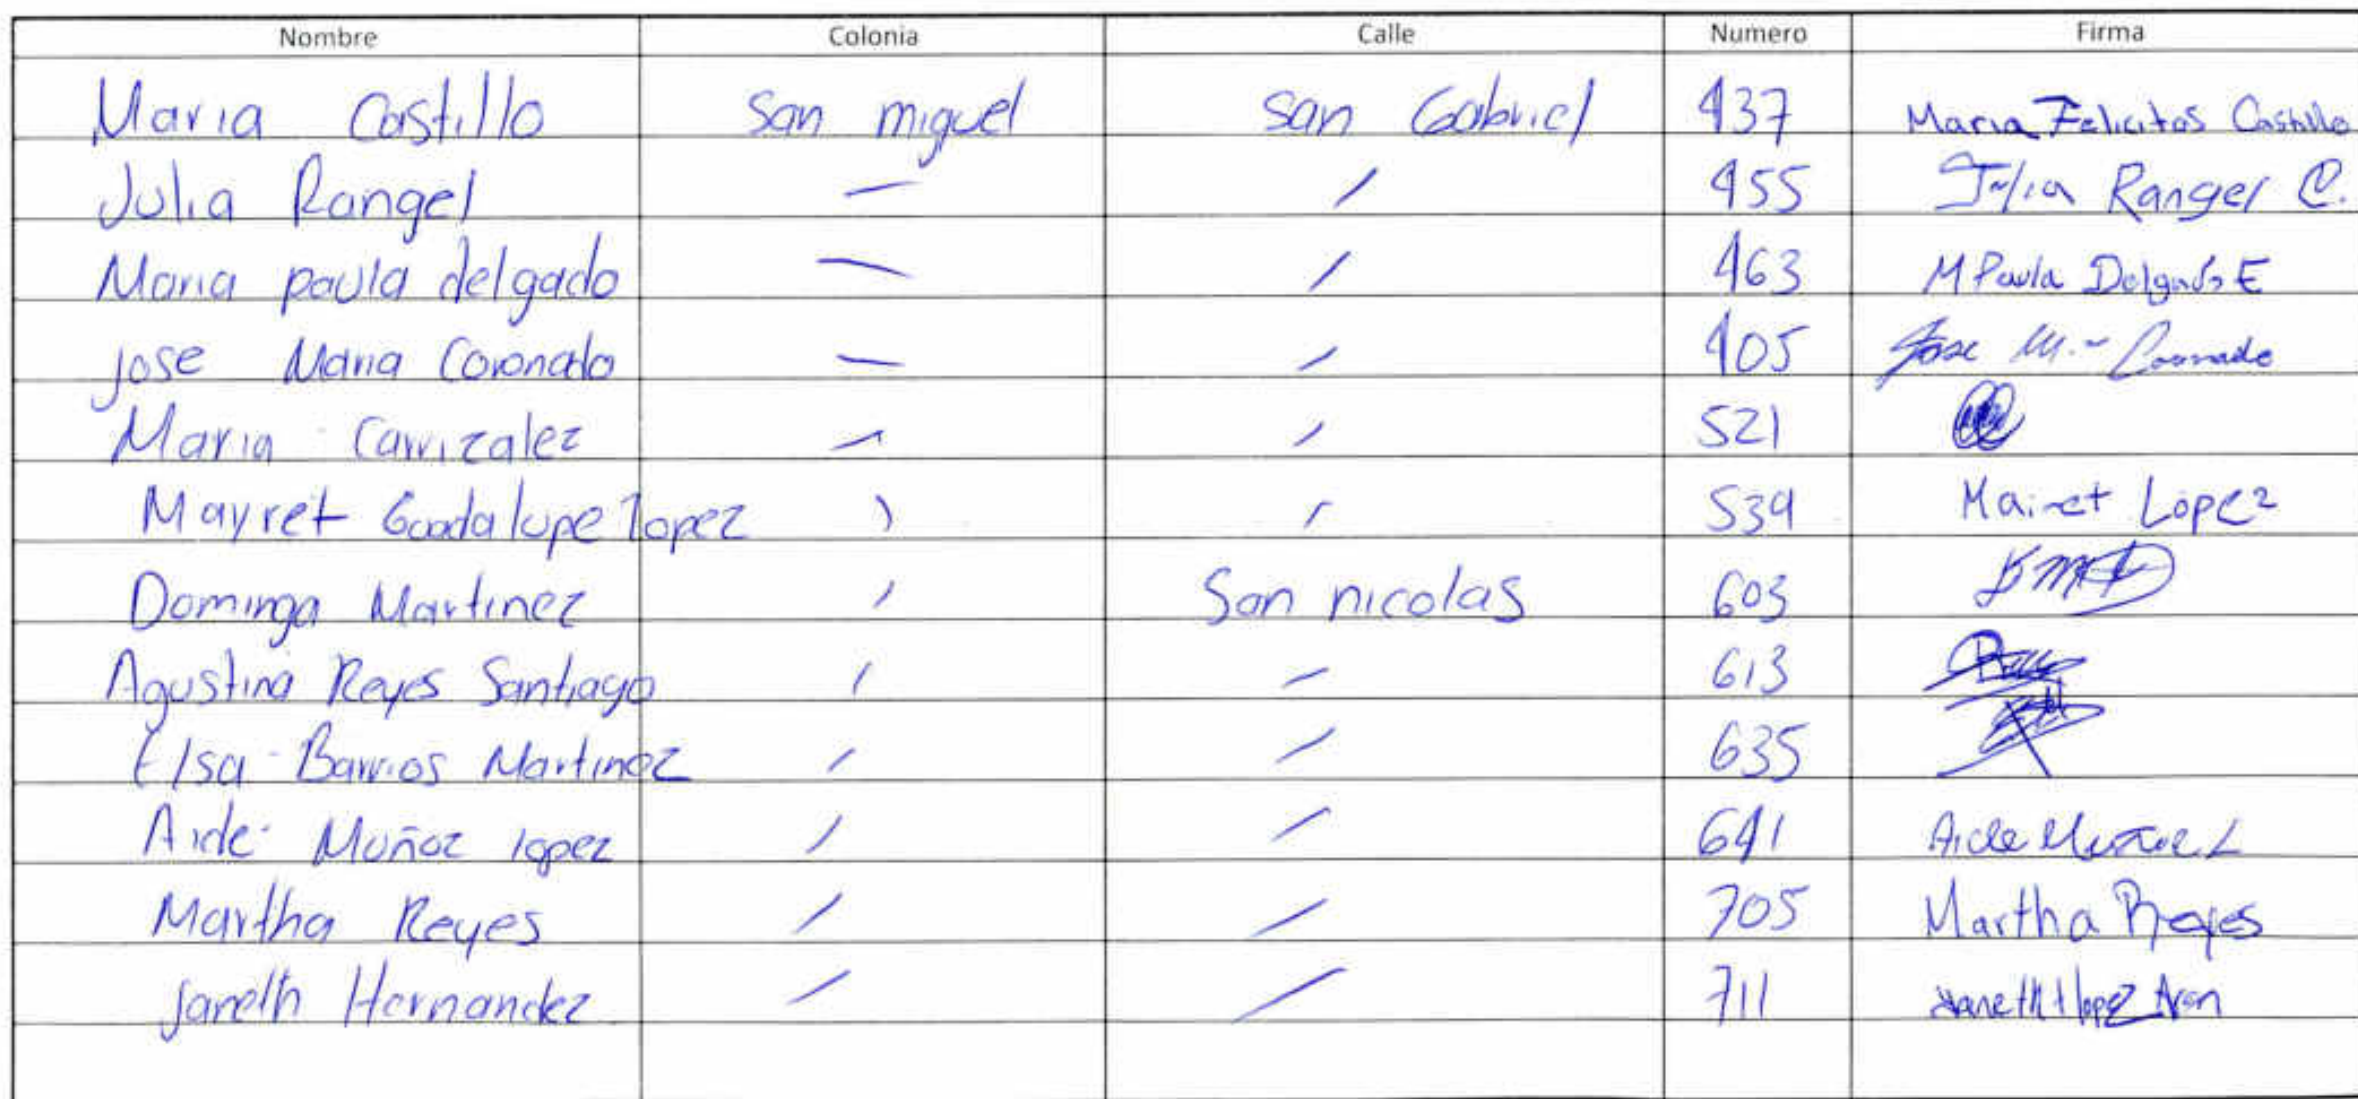 Nombre Colonia Calle Numero Firma
Maria Castillo San miguel San Gabriel 437 Maria Felicitas Castillo
Julia Rangel — / 455 Julia Rangel C.
Maria paula delgado — / 463 M Paula Delgado E
jose Maria Coronado — / 405 Jose M. Coronado
Maria Carrizalez / / 521
Mayret Guadalupe lopez / / 539 Mairet Lopez
Dominga Martinez / San nicolas 603
Agustina Reyes Santiago / / 613
Elsa Barrios Martinez / / 635
Aide Muñoz lopez / / 641 Aide Muñoz L
Martha Reyes / / 705 Martha Reyes
Janeth Hernandez / / 711